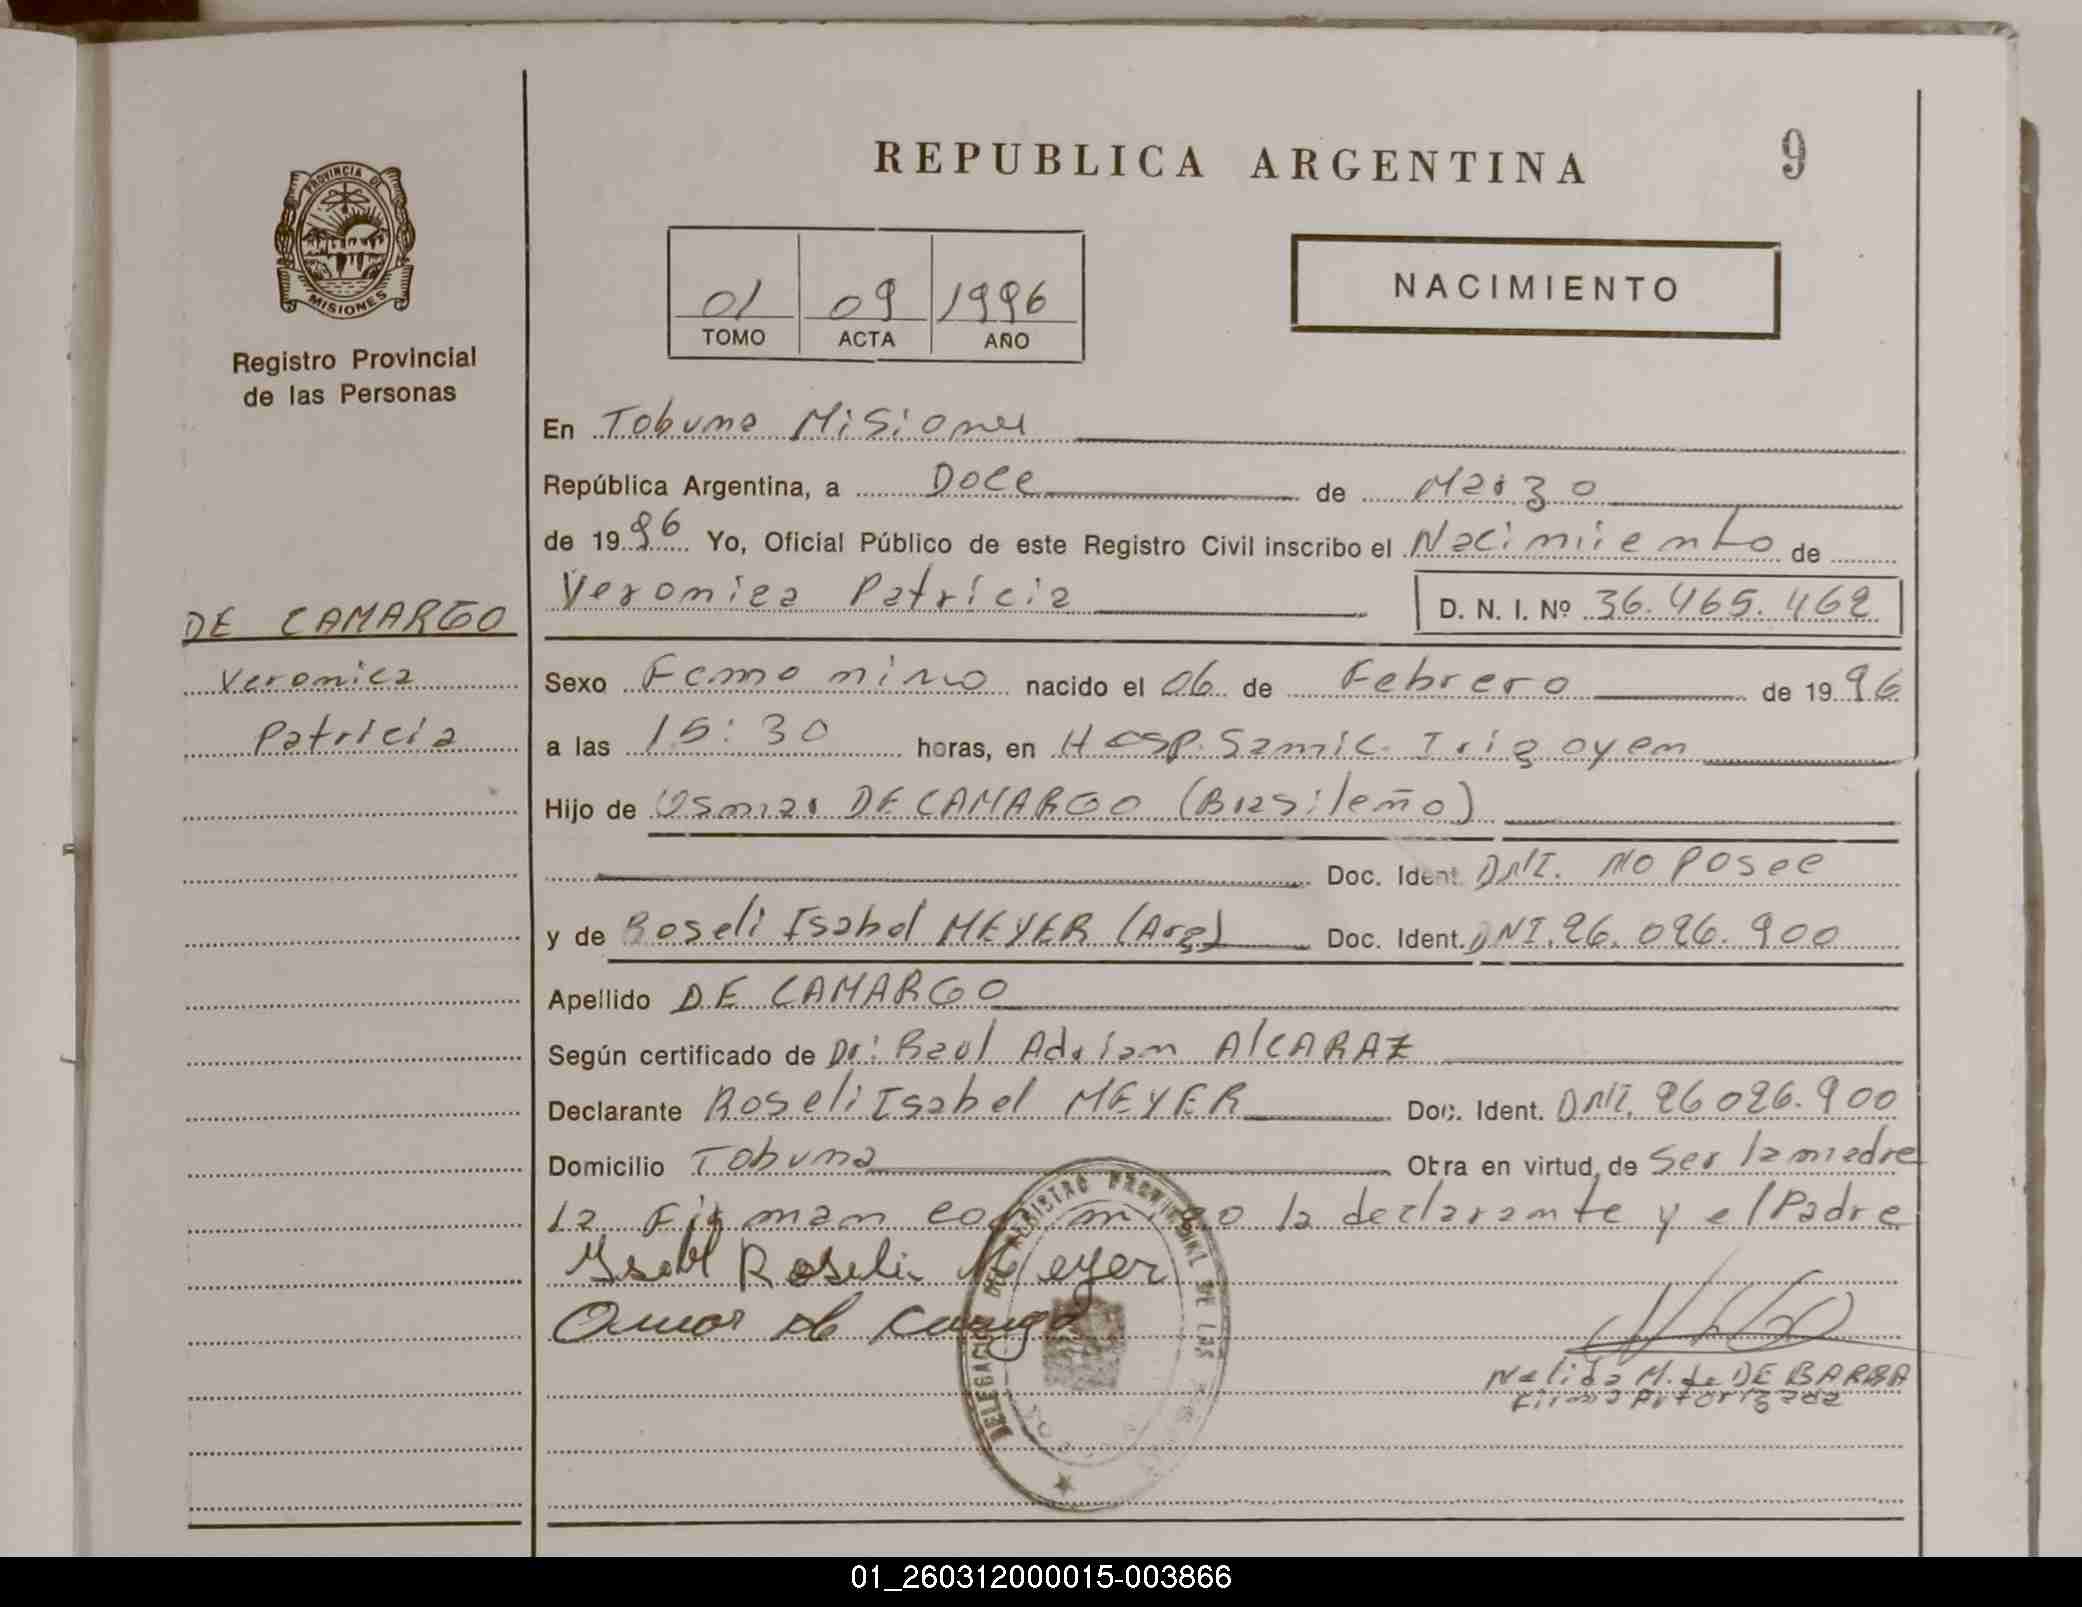 REPUBLICA ARGENTINA
9
PROVINCIA DE
MISIONES
Registro Provincial
de las Personas
01 09 1996
TOMO ACTA AÑO
NACIMIENTO
En Tobuna Misiones
República Argentina, a Doce de Marzo
de 1996 Yo, Oficial Público de este Registro Civil inscribo el Nacimiento de
Veronica Patricia D. N. I. Nº 36.465.462
DE CAMARGO
Veronica
Patricia
Sexo Femenino nacido el 06 de Febrero de 1996
a las 15:30 horas, en Hosp. Samic. Irigoyen
Hijo de Osmar DE CAMARGO (Brasileño)
Doc. Ident. DNI. No Posee
y de Roseli Isabel MEYER (Arg) Doc. Ident. DNI. 26.026.900
Apellido DE CAMARGO
Según certificado de Dr: Raul Adrian AlCARAZ
Declarante Roseli Isabel MEYER Doc. Ident. DNI. 26026.900
Domicilio Tobuna Obra en virtud de Ser la madre
la Firman conmigo la declarante y el Padre
Isabel Roseli Meyer
de Camargo
Nelida M. de DE BARBA
Firma Autorizada
DELEGACION DEL REGISTRO PROVINCIAL DE LAS
01_260312000015-003866